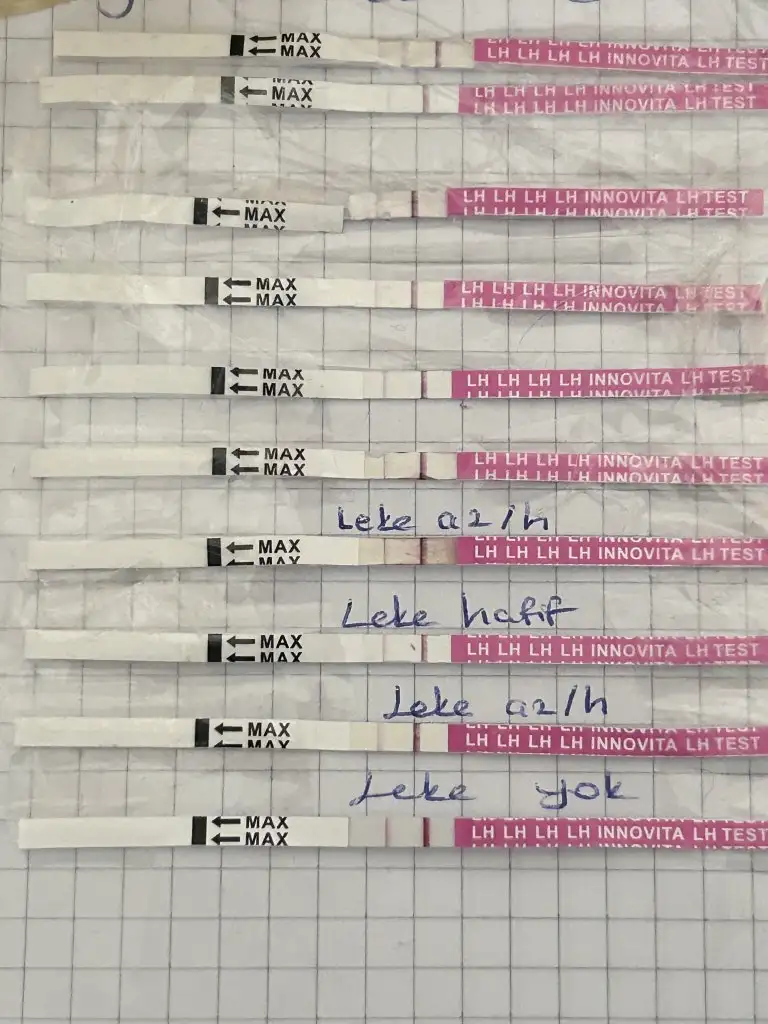 MAX
MAX
LH LH LH LH INNOVITA LH TEST
LH LH LH LH INNOVITA LH TEST
MAX
MAX
MAX
LH LH LH LH INNOVITA LH TEST
LH LH LH LH INNOVITA LH TEST
MAX
MAX
MAX
LH LH LH LH INNOVITA LH TEST
LH LH LH LH INNOVITA LH TEST
MAX
MAX
LH LH LH LH INNOVITA LH TEST
LH LH LH LH INNOVITA LH TEST
MAX
MAX
LH LH LH LH INNOVITA LH TEST
LH LH LH LH INNOVITA LH TEST
MAX
MAX
LH LH LH LH INNOVITA LH TEST
LH LH LH LH INNOVITA LH TEST
Leke az/h
MAX
MAX
LH LH LH LH INNOVITA LH TEST
LH LH LH LH INNOVITA LH TEST
Leke hafif
MAX
MAX
LH LH LH LH INNOVITA LH TEST
Leke az/h
MAX
MAX
LH LH LH LH INNOVITA LH TEST
LH LH LH LH INNOVITA LH TEST
Leke yok
MAX
MAX
LH LH LH LH INNOVITA LH TEST